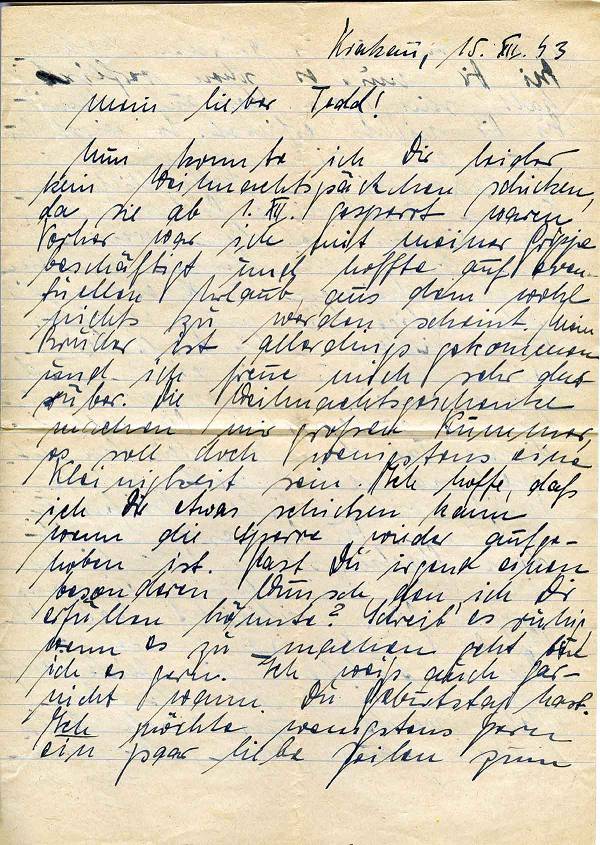 Krakau, 15. XII. 43
Mein lieber Tedd!
Nun konnte ich Dir leider
kein Weihnachtspäckchen schicken,
da sie ab 1. XII. gesperrt waren
Vorher war ich mit meiner Grippe
beschäftigt und hoffte auf even-
tuellen Urlaub, aus dem wohl
nichts zu werden scheint. Mein
Bruder ist allerdings gekommen
und ich freue mich sehr dar-
über. Die Weihnachtsgeschenke
machen mir großen Kummer
es soll doch wenigstens eine
Kleinigkeit sein. Ich hoffe, daß
ich Dir etwas schicken kann
wenn die Sperre wieder aufge-
hoben ist. Hast Du irgend einen
besonderen Wunsch, den ich Dir
erfüllen könnte? Schreib es ruhig
wenn es zu machen geht
ich es gern. Ich weiß auch gar-
nicht wann Du Geburtstag hast.
Ich möchte wenigstens gern
ein paar liebe Zeilen zum